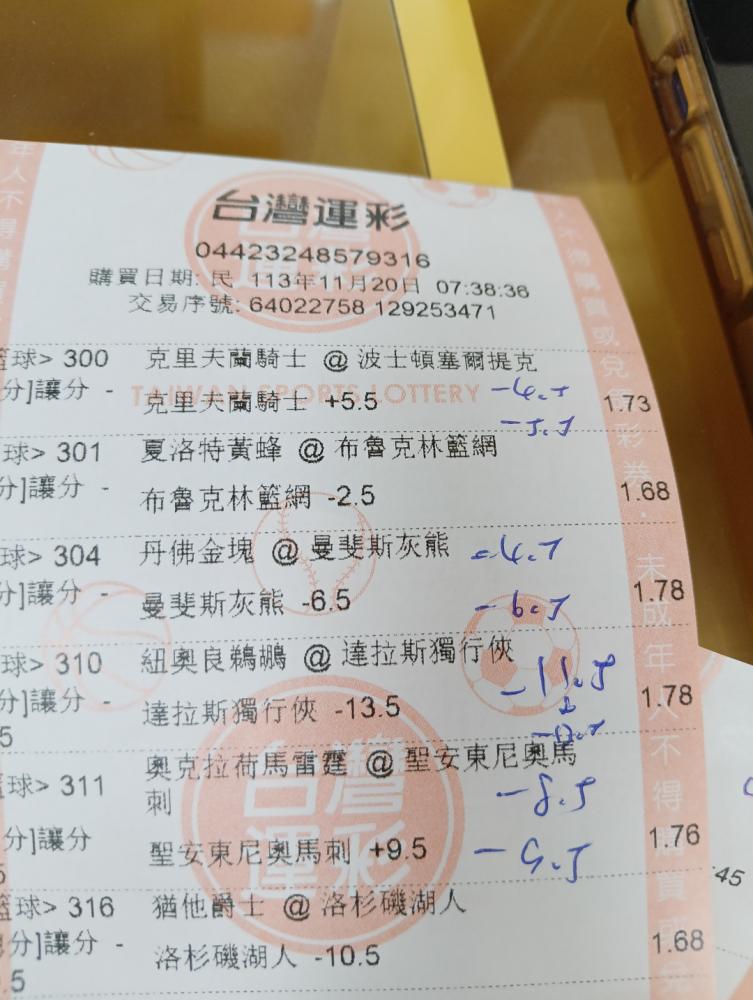 台灣運彩
04423248579316
購買日期: 民 113年11月20日 07:38:36
交易序號: 64022758 129253471
籃球> 300 克里夫蘭騎士 @ 波士頓塞爾提克
分]讓分 - 克里夫蘭騎士 +5.5 1.73
-4.5
-5.5
TAIWAN SPORTS LOTTERY
球> 301 夏洛特黃蜂 @ 布魯克林籃網
分]讓分 - 布魯克林籃網 -2.5 1.68
球> 304 丹佛金塊 @ 曼斐斯灰熊 -4.5
分]讓分 - 曼斐斯灰熊 -6.5 -6.5 1.78
球> 310 紐奧良鵜鶘 @ 達拉斯獨行俠
分]讓分 - 達拉斯獨行俠 -13.5 -11.5 1.78
5
球> 311 奧克拉荷馬雷霆 @ 聖安東尼奧馬
刺 -8.5
分]讓分 聖安東尼奧馬刺 +9.5 -9.5 1.76
5
籃球> 316 猶他爵士 @ 洛杉磯湖人
分]讓分 - 洛杉磯湖人 -10.5 1.68
.5
台灣
運彩
人不得購買或兌領彩券．未成年人不得購買或
年人不得購買
45